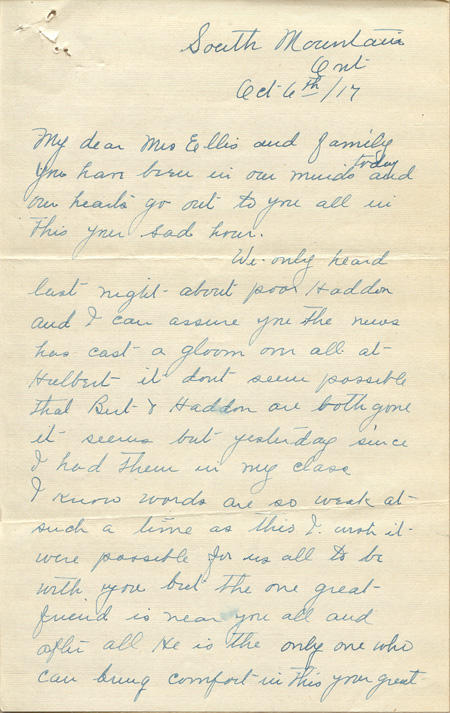 South Mountain
Ont
Oct 6th/17
My dear Mrs Ellis and family
You have been in our minds today and
our hearts go out to you all in
this your sad hour.
We only heard
last night about poor Haddon
and I can assure you the news
has cast a gloom over all at
Hulbert it dont seem possible
that Burt & Haddon are both gone
it seems but yesterday since
I had them in my class
I know words are so weak at
such a time as this I wish it
were possible for us all to be
with you but the one great
friend is near you all and
after all He is the only one who
can bring comfort in this your great